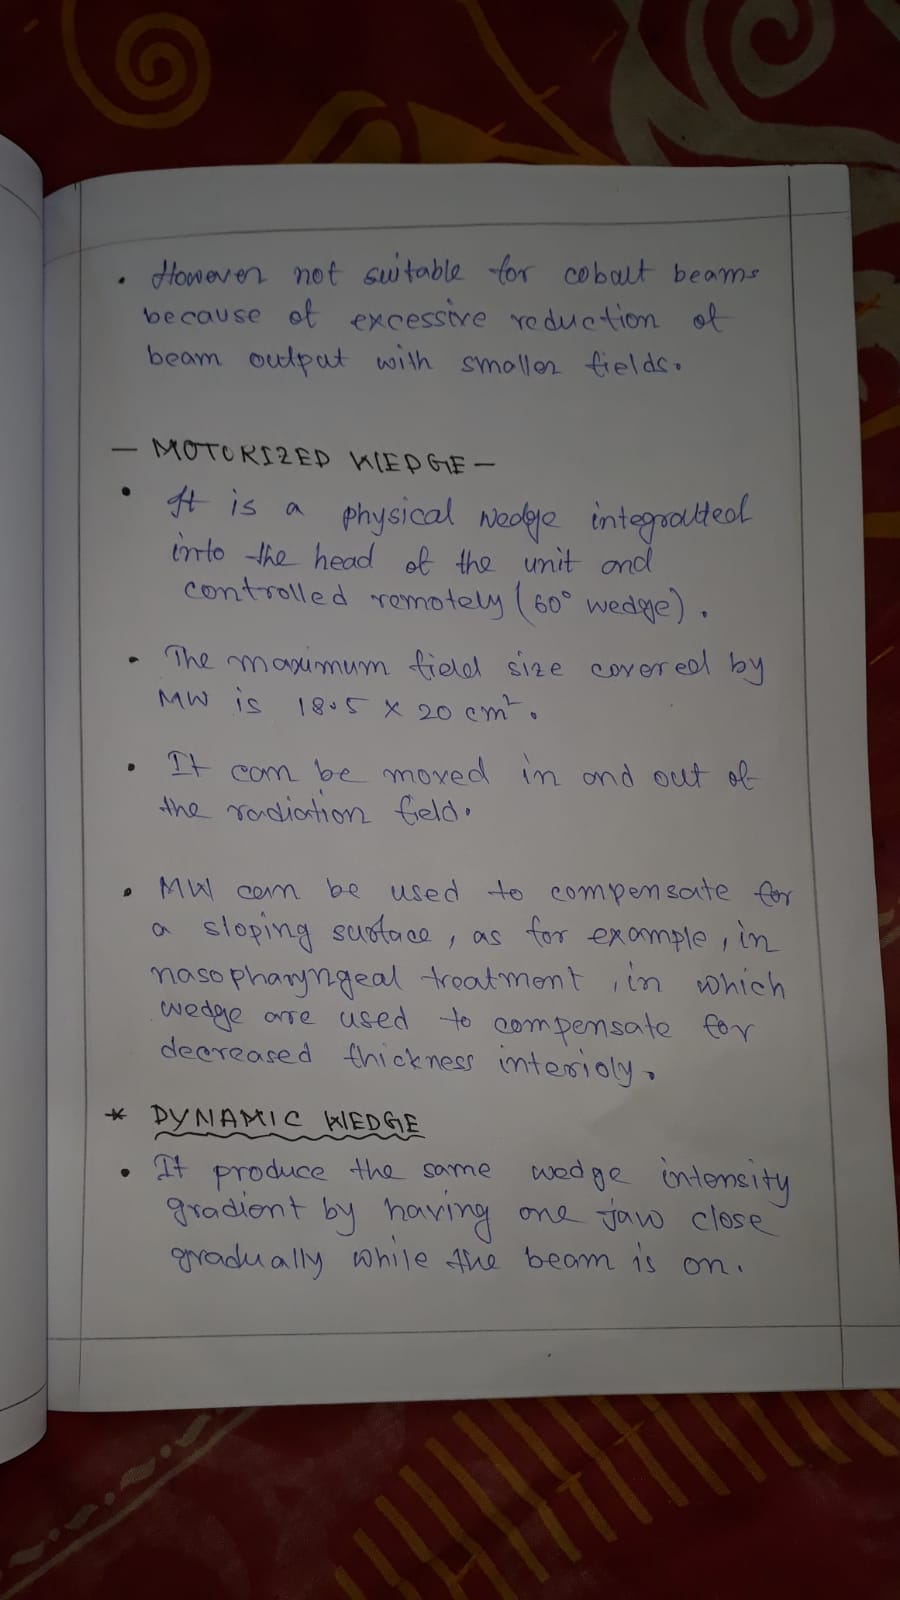 • However not suitable for cobalt beams
because of excessive reduction of
beam output with smaller fields.
— MOTORIZED WEDGE —
• It is a physical wedge integrated
into the head of the unit and
controlled remotely (60° wedge).
• The maximum field size covered by
MW is 18.5 x 20 cm².
• It can be moved in and out of
the radiation field.
• MW can be used to compensate for
a sloping surface, as for example, in
nasopharyngeal treatment, in which
wedge are used to compensate for
decreased thickness interioly.
* DYNAMIC WEDGE
• It produce the same wedge intensity
gradient by having one jaw close
gradually while the beam is on.